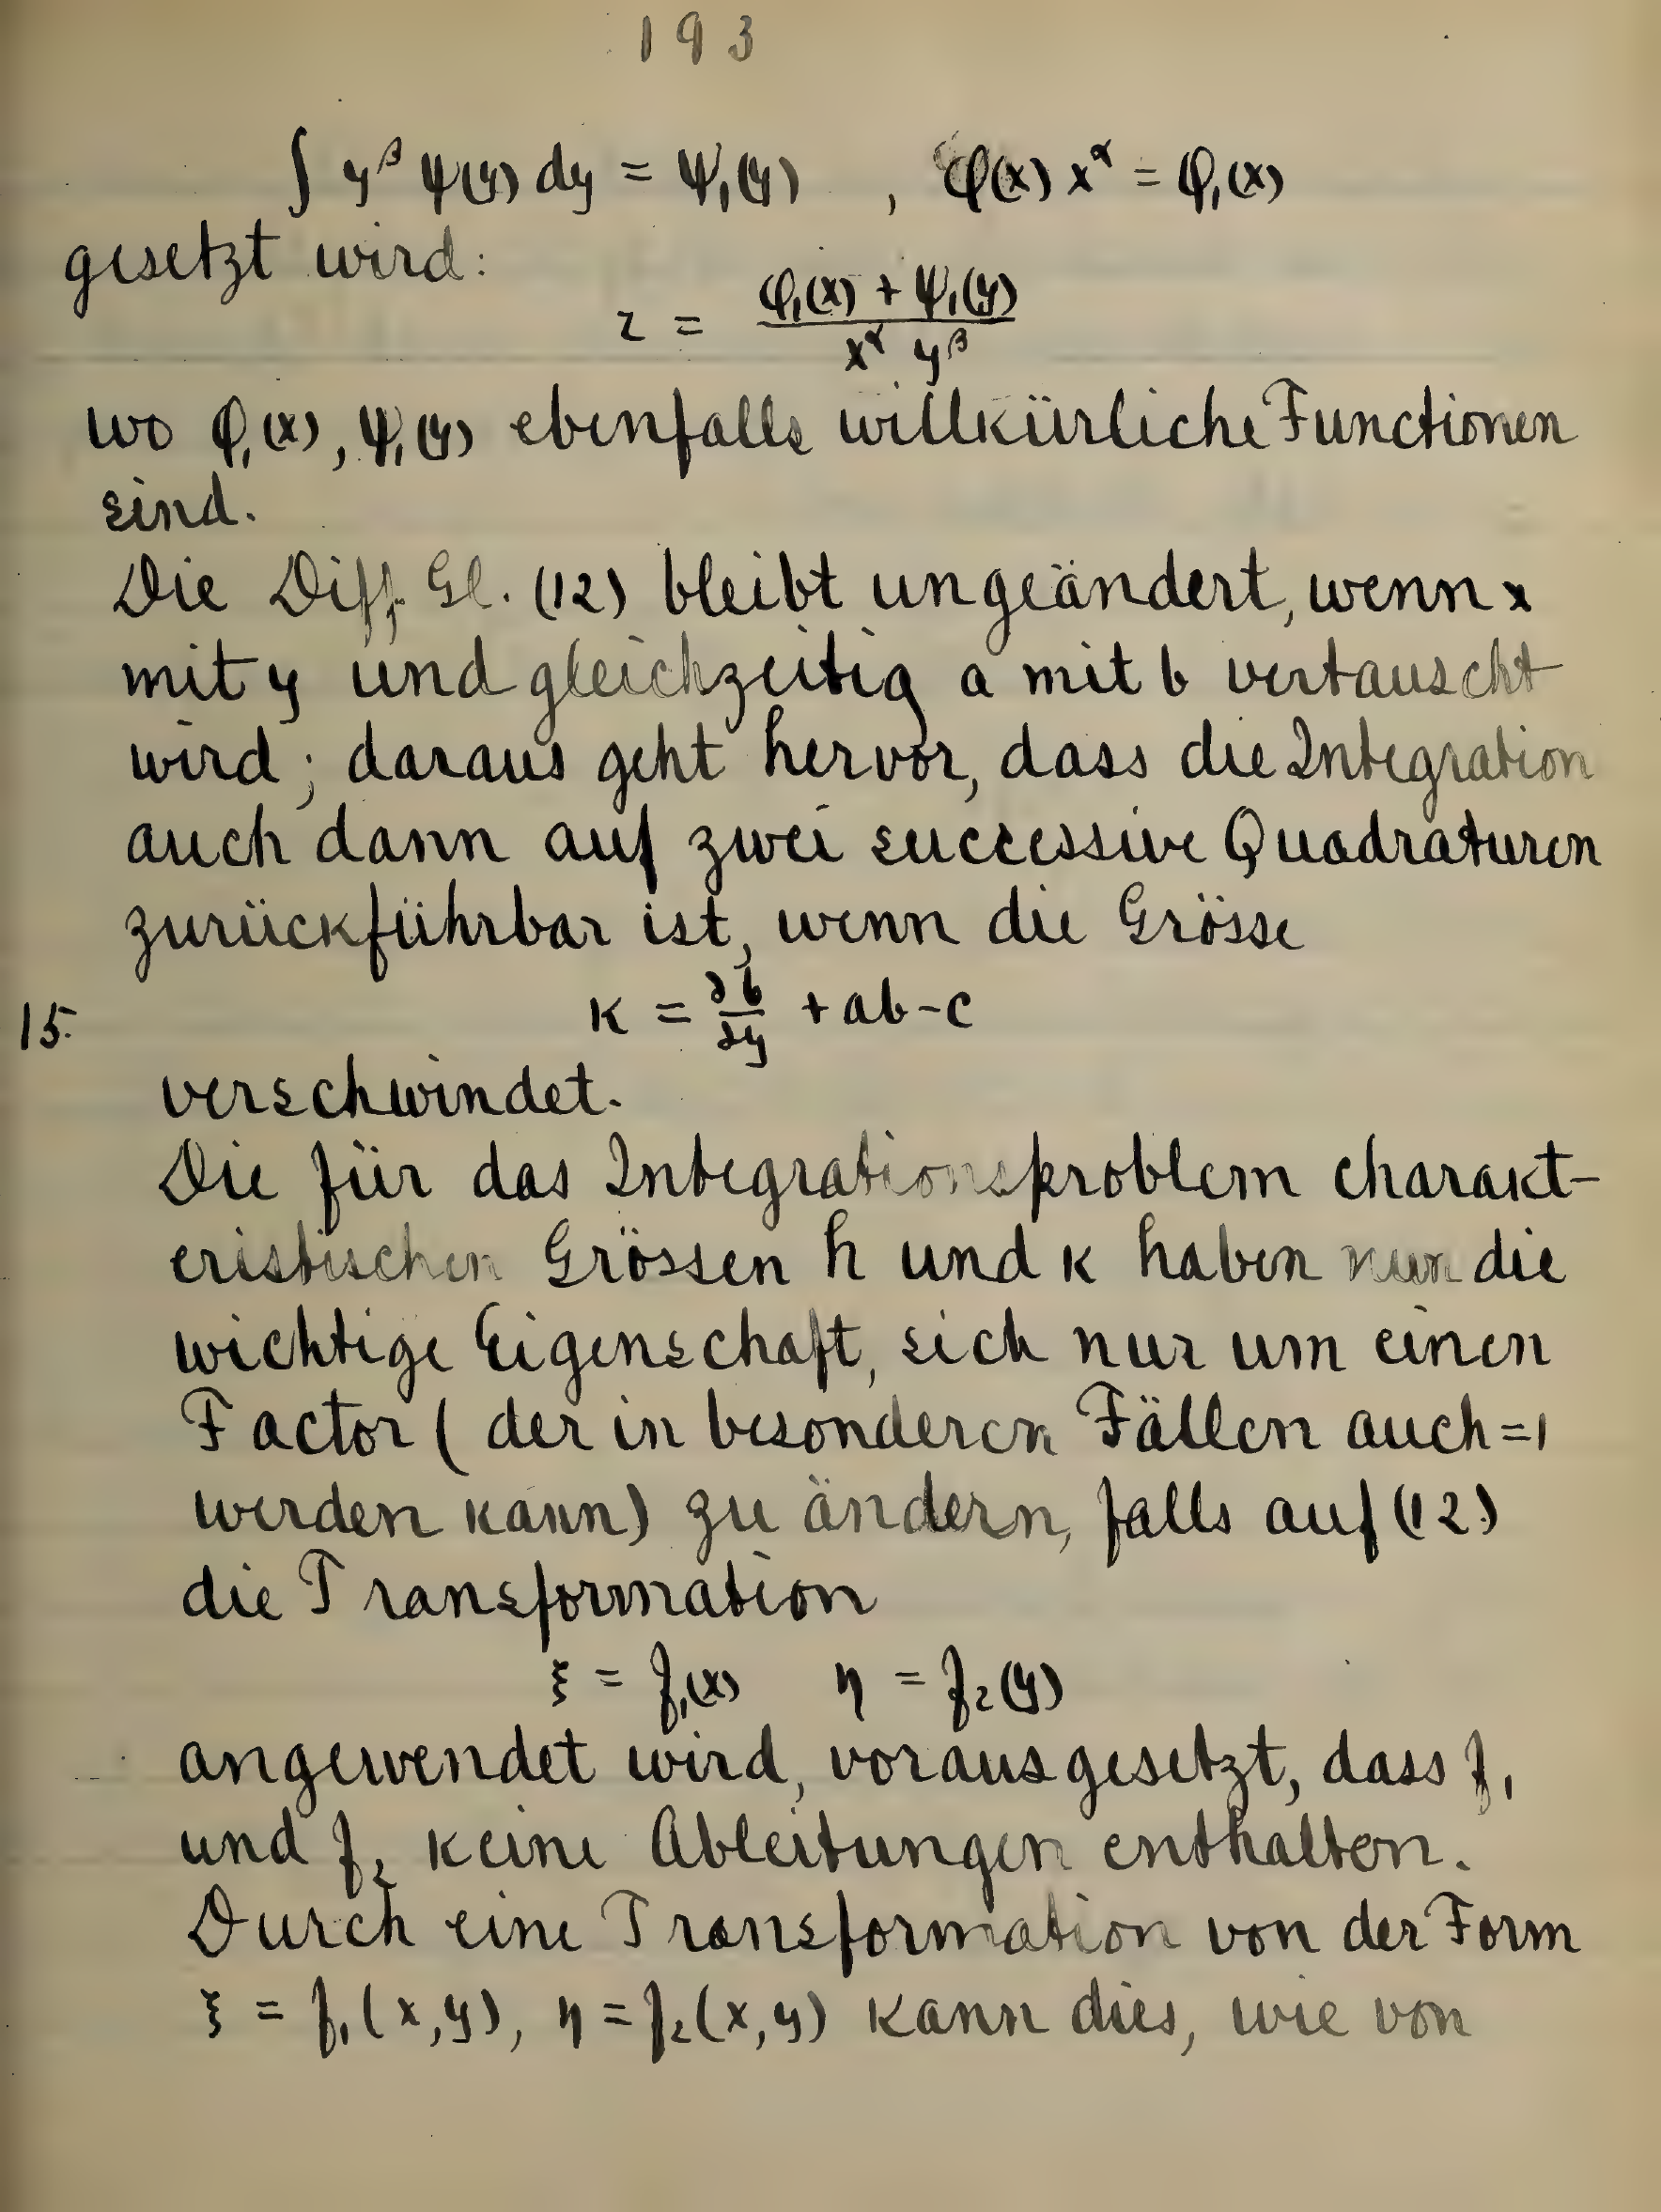 193
∫ y^β ψ(y) dy = ψ₁(y) , φ(x) x^α = φ₁(x)
gesetzt wird:
z = (φ₁(x) + ψ₁(y)) / (x^α y^β)
wo φ₁(x), ψ₁(y) ebenfalls willkürliche Functionen
sind.
Die Diff. Gl. (12) bleibt ungeändert, wenn x
mit y und gleichzeitig a mit b vertauscht
wird; daraus geht hervor, dass die Integration
auch dann auf zwei successive Quadraturen
zurückführbar ist, wenn die Grösse
15. k = ∂b/∂y + ab - c
verschwindet.
Die für das Integrationsproblem charakt-
eristischen Grössen h und k haben nun die
wichtige Eigenschaft, sich nur um einen
Factor (der in besonderen Fällen auch = 1
werden kann) zu ändern, falls auf (12)
die Transformation
ξ = f₁(x) η = f₂(y)
angewendet wird, vorausgesetzt, dass f₁
und f₂ keine Ableitungen enthalten.
Durch eine Transformation von der Form
ξ = f₁(x,y), η = f₂(x,y) kann dies, wie von